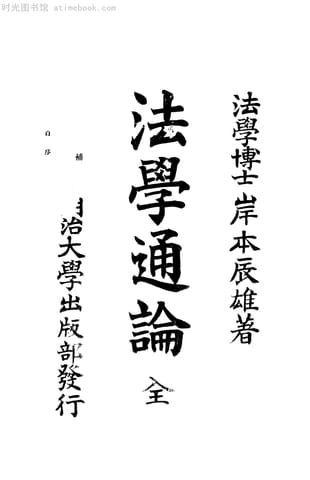 时光图书馆 atimebook.com
法學博士岸本辰雄著
法學通論
全
補
自序
明治大學出版部發行